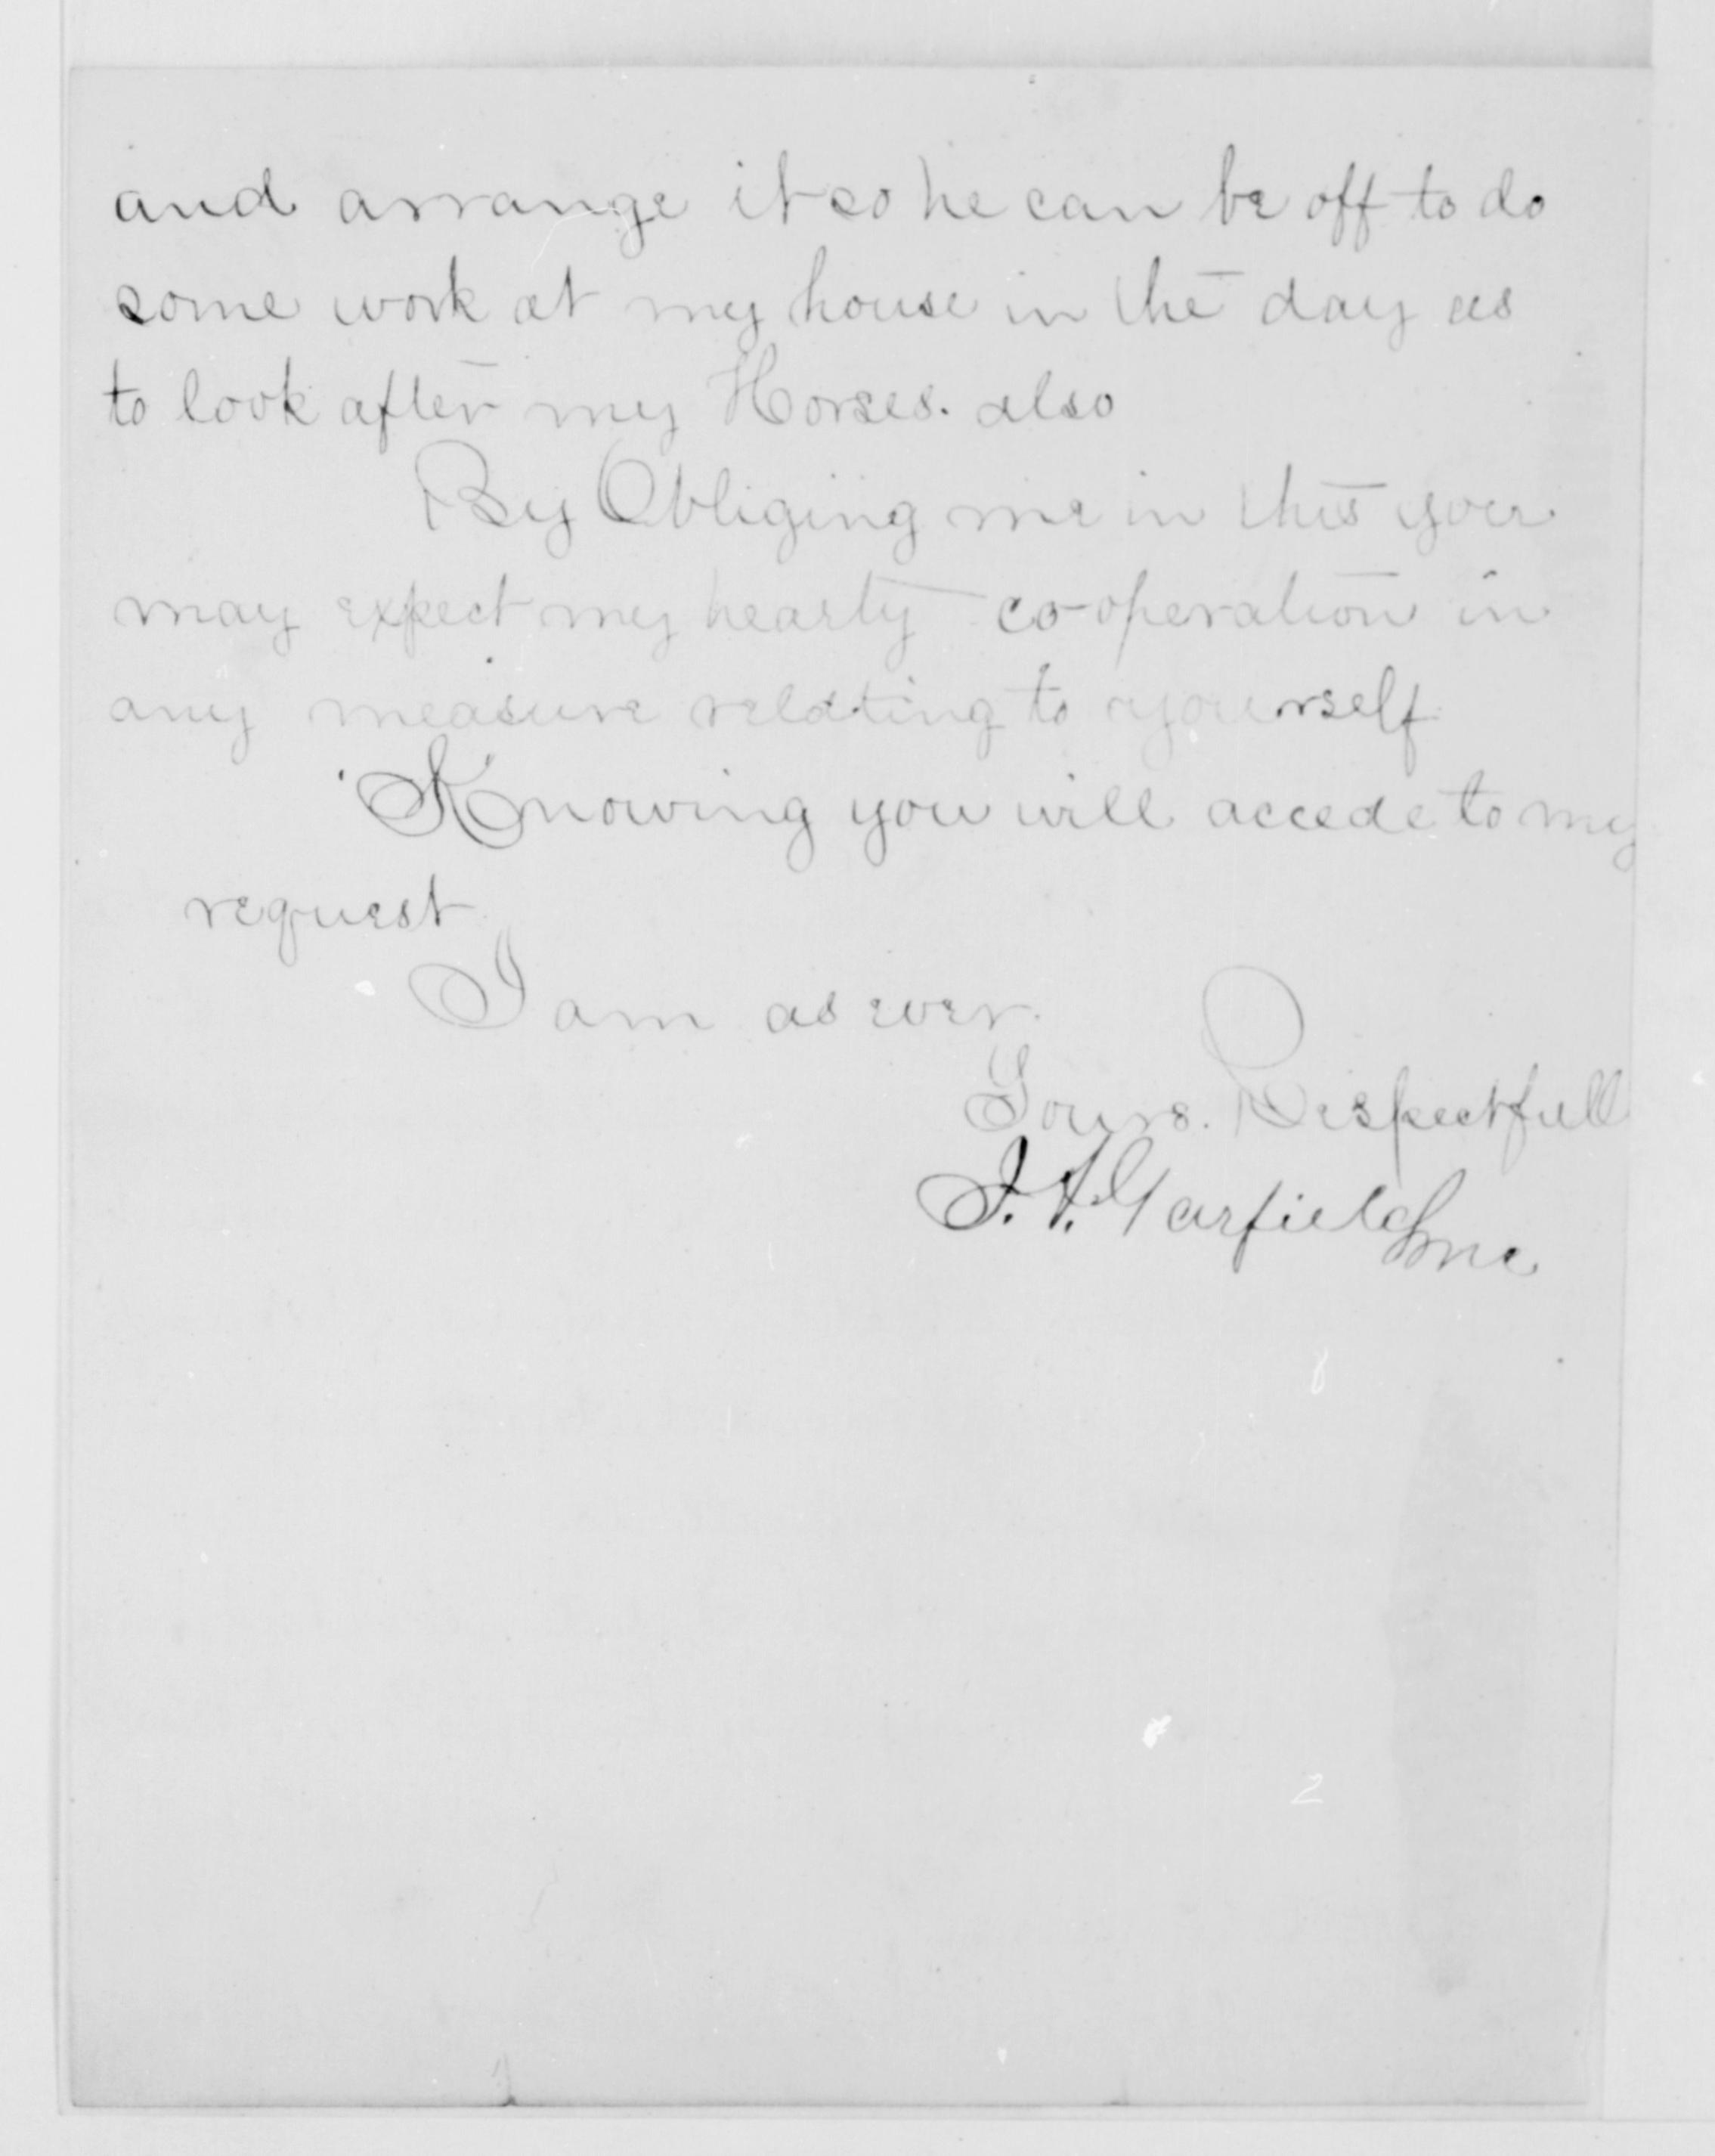 and arrange it so he can be off to do
some work at my house in the day as
to look after my Horses. also
By Obliging me in this you
may expect my hearty co-operation in
any measure relating to yourself
Knowing you will accede to my
request
I am as ever.
Yours. Respectfull
J. A. Garfield
2